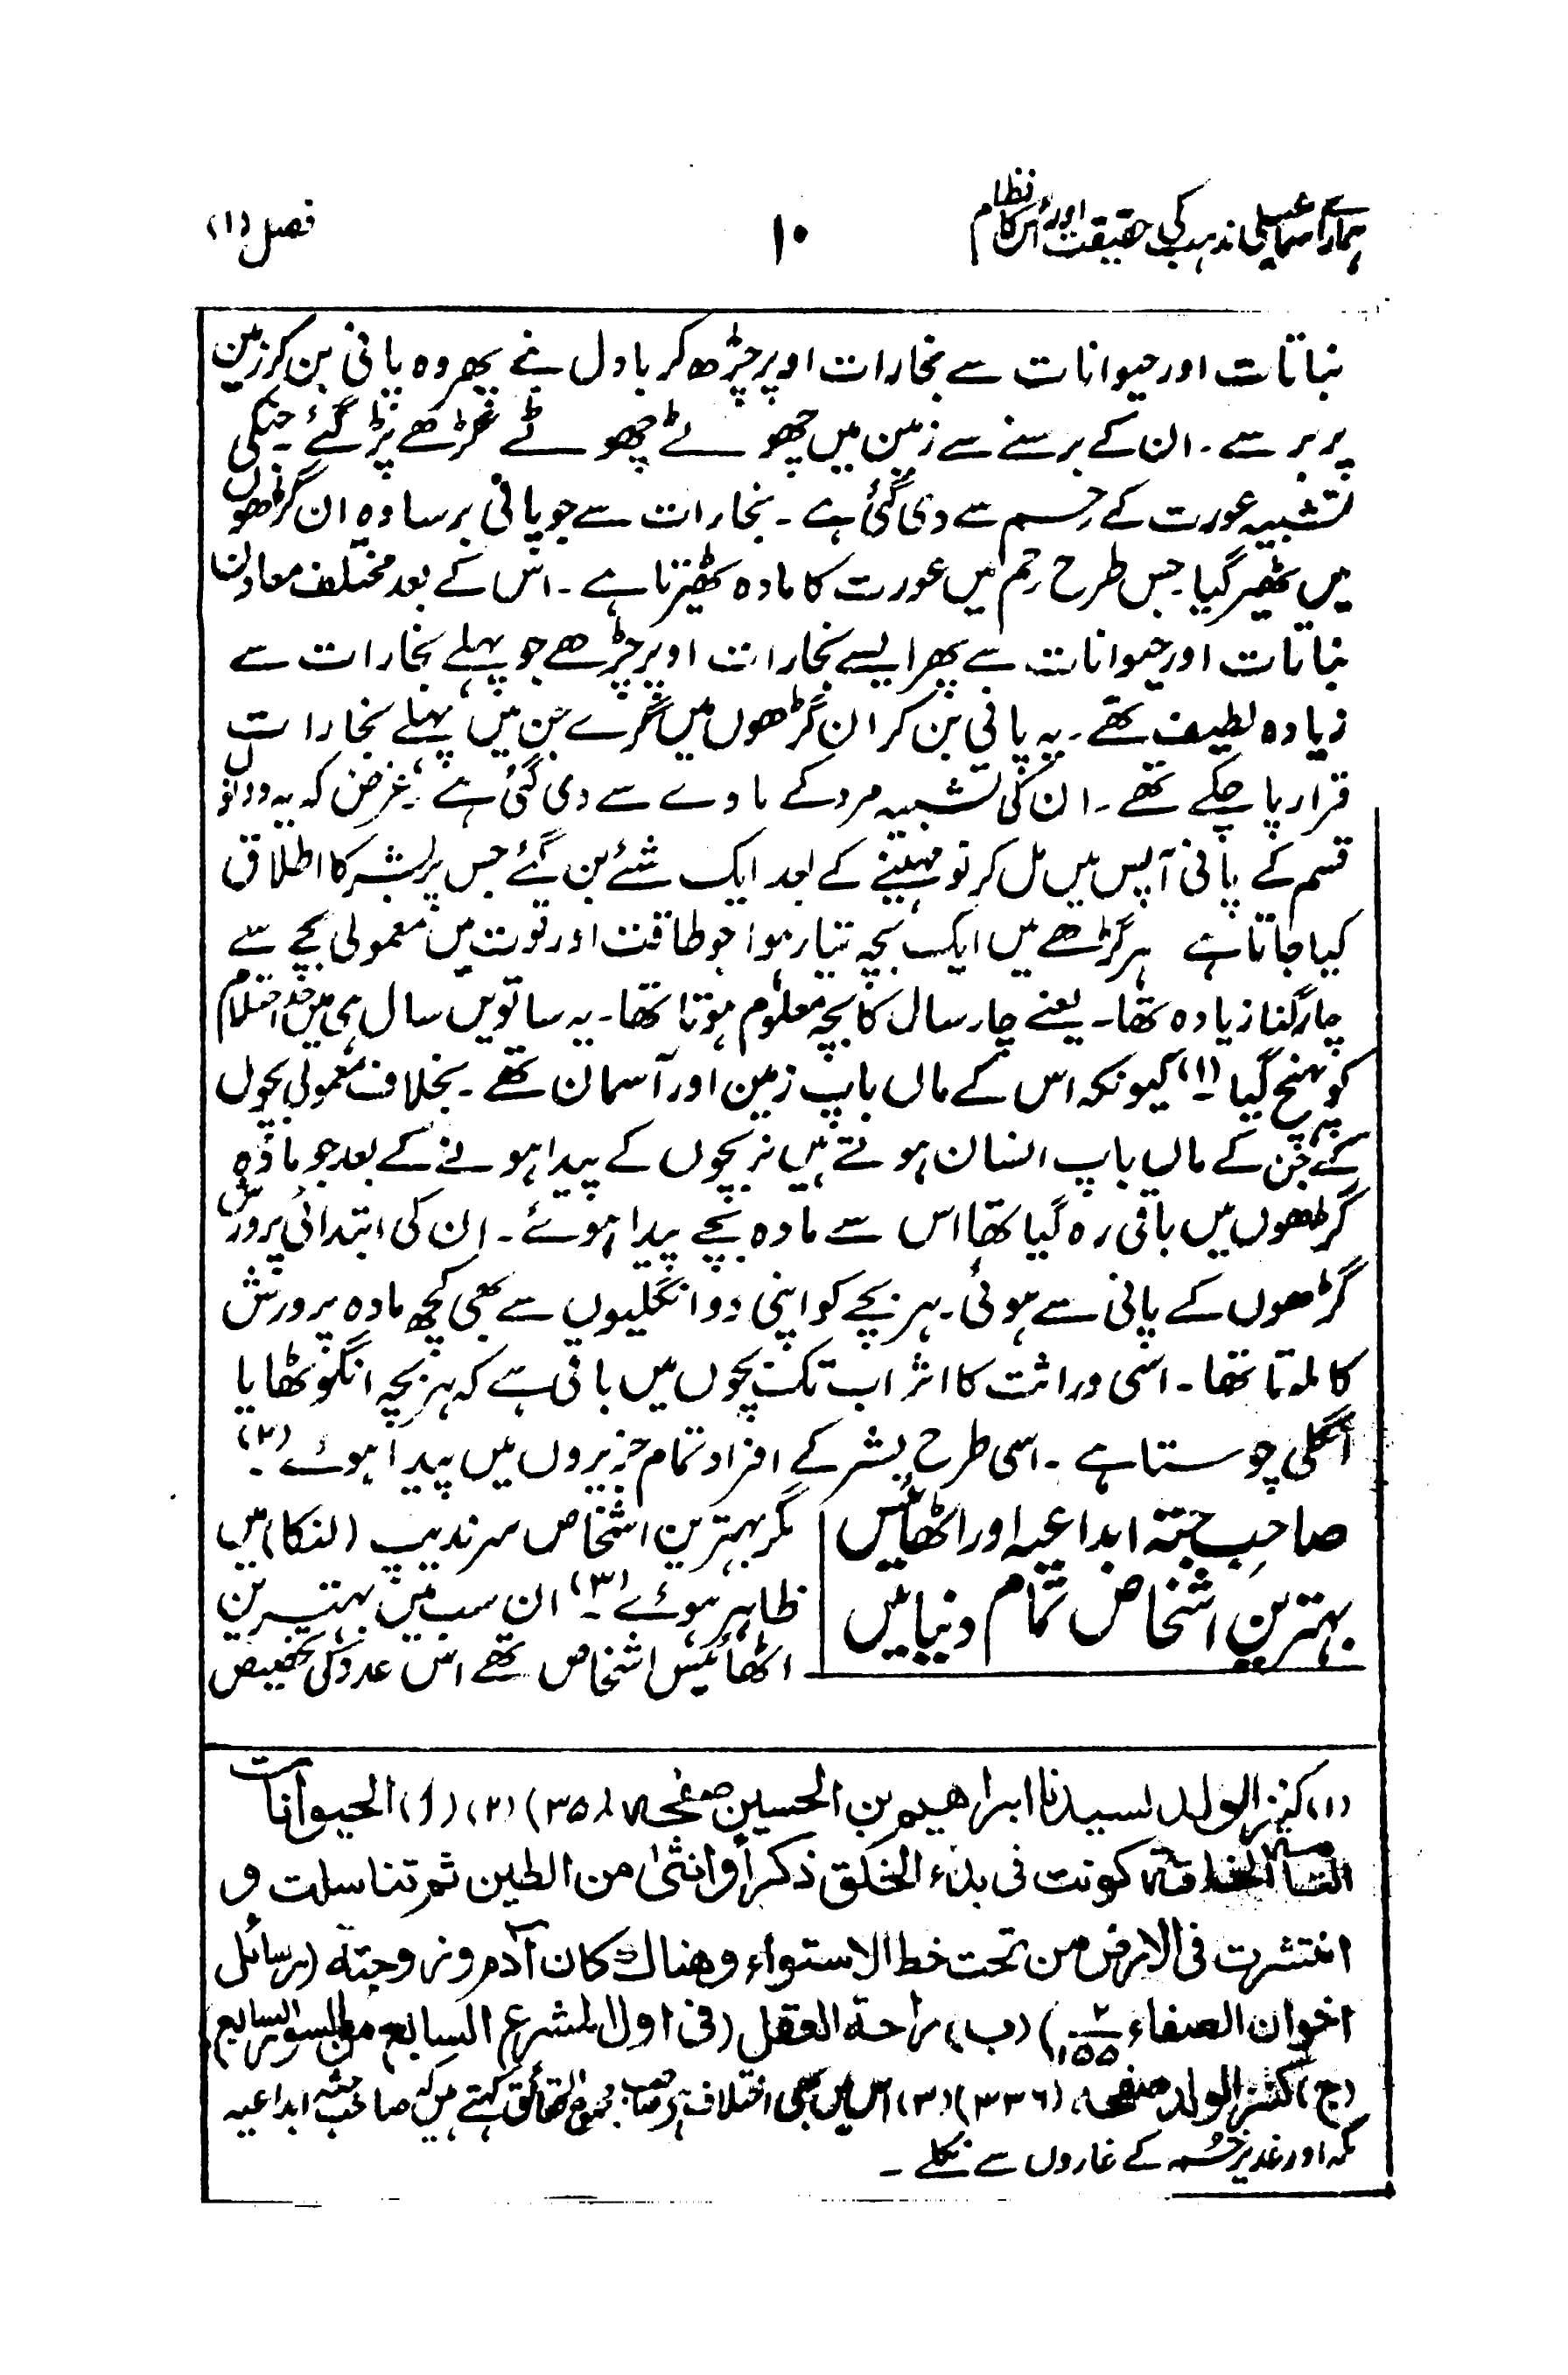 ہمارے اسماعیلی مذہب کی حقیقت اور اس کا نظام
۱۰
فصل (۱)
نباتات اور حیوانات سے بخارات اوپر چڑھ کر بادل بنے پھر وہ پانی بن کر زمین
پر برسے ۔ ان کے برسنے سے زمین میں چھوٹے چھوٹے گڑھے پڑ گئے ۔ جنکی
تشبیہ عورت کے رحم سے دی گئی ہے ۔ بخارات سے جو پانی برسا وہ ان گڑھوں
میں ٹھیر گیا جس طرح رحم میں عورت کا مادہ ٹھیرتا ہے ۔ اس کے بعد مختلف معادن
نباتات اور حیوانات سے پھر ایسے بخارات اوپر چڑھے جو پہلے بخارات سے
زیادہ لطیف تھے ۔ یہ پانی بن کر ان گڑھوں میں گرے جن میں پہلے بخارات
قرار پا چکے تھے ۔ ان کی تشبیہ مرد کے مادے سے دی گئی ہے ۔ غرض کہ یہ دونوں
قسم کے پانی آپس میں مل کر نو مہینے کے بعد ایک شئے بن گئے جس پر بشر کا اطلاق
کیا جاتا ہے ہر گڑھے میں ایک بچہ تیار ہوا جو طاقت اور قوت میں معمولی بچے سے
چار گنا زیادہ تھا ۔ یعنے چار سال کا بچہ معلوم ہوتا تھا ۔ یہ ساتویں سال ہی میں حد احتلام
کو پہنچ گیا (۱) کیونکہ اس کے ماں باپ زمین اور آسمان تھے ۔ بخلاف معمولی بچوں
کے جن کے ماں باپ انسان ہوتے ہیں نر بچوں کے پیدا ہونے کے بعد جو مادّہ
گڑھوں میں باقی رہ گیا تھا اس سے مادہ بچے پیدا ہوئے ۔ ان کی ابتدائی پرورش
گڑھوں کے پانی سے ہوئی ۔ ہر بچے کو اپنی دو انگلیوں سے بھی کچھ مادہ پرورش
کا ملتا تھا ۔ اسی وراثت کا اثر اب تک بچوں میں باقی ہے کہ ہر بچہ انگوٹھا یا
انگلی چوستا ہے ۔ اسی طرح بشر کے افراد تمام جزیروں میں پیدا ہوئے (۲)۔
صاحبِ جثتہ ابداعیہ اور اٹھائیس
بہترین اشخاص تمام دنیا میں
مگر بہترین اشخاص سرندیپ (لنکا) میں
ظاہر ہوئے (۳)۔ ان سب میں بہترین
اٹھائیس اشخاص تھے اس عدد کی تخصیص
(۱) کنز الولد لسیدنا ابراھیم بن الحسین صفحہ ۳۵۸) (۲) (۱) الحیوانات
التامة الخلقة کونت فی بدء الخلق ذکراً وانثیٰ من الطین ثم تناسلت و
انتشرت فی الارض من تحت خط الاستواء وھناک کان آدم وزوجتہ (رسائل
اخوان الصفاء ۲/۱۵۵) (ب) راحة العقل (فی اول المشرع السابع من السور السابع)
(ج) کنز الولد صفحہ (۳۳۶) (۳) اس میں بھی اختلاف ہے صاحب مجموع الحقائق کہتے ہیں کہ صاحب جثہ ابداعیہ
مکہ اور غدیر خُم کے غاروں سے نکلے ۔